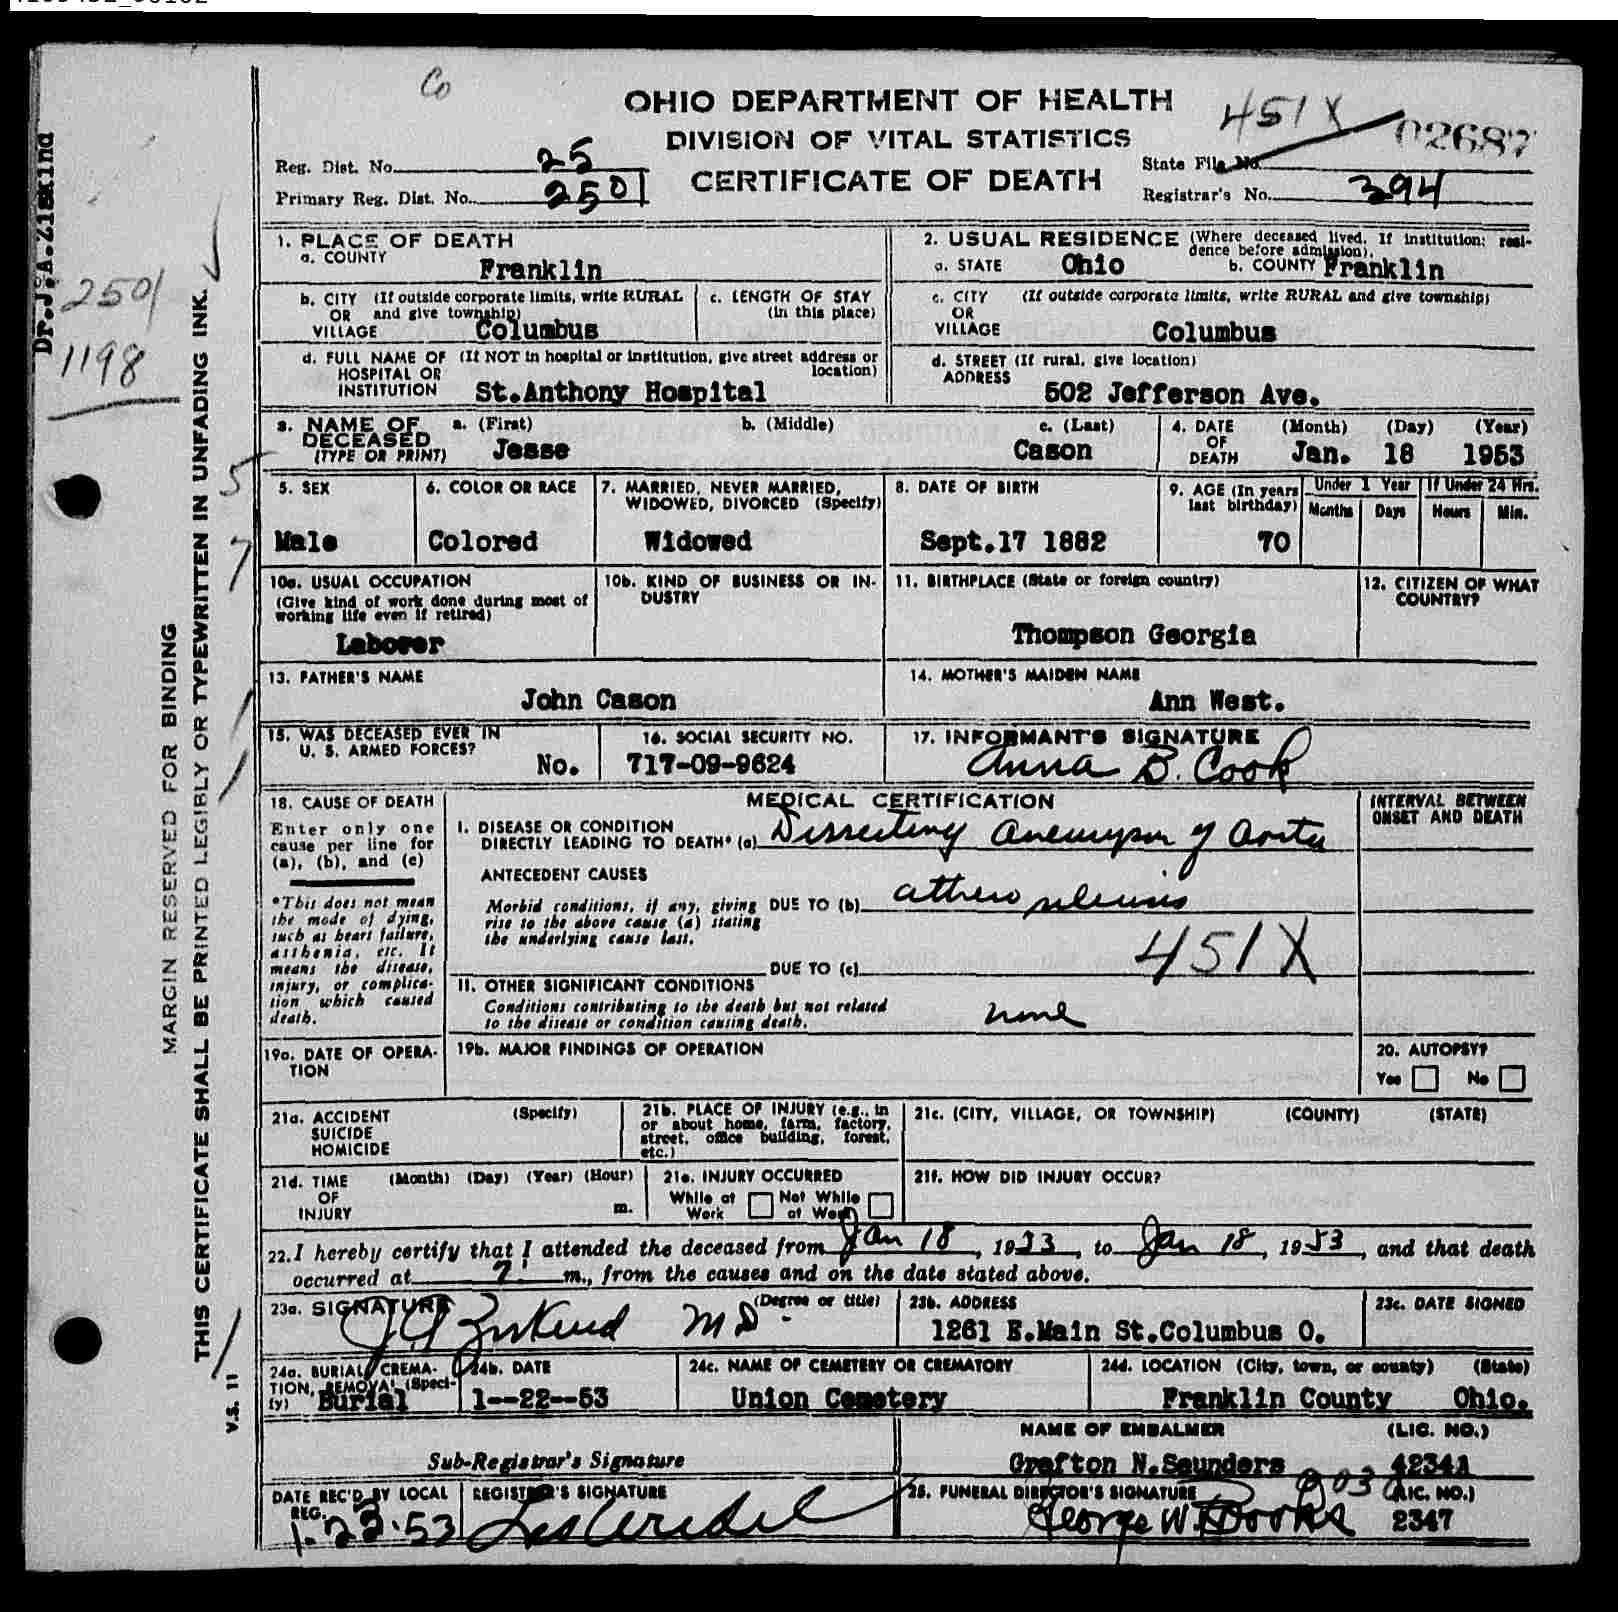 Co
OHIO DEPARTMENT OF HEALTH
DIVISION OF VITAL STATISTICS
CERTIFICATE OF DEATH
451X
02687
Reg. Dist. No. 25
Primary Reg. Dist. No. 2501
State File No.
Registrar's No. 394
Dr.J.A.Zirkind
2501
1198
MARGIN RESERVED FOR BINDING
THIS CERTIFICATE SHALL BE PRINTED LEGIBLY OR TYPEWRITTEN IN UNFADING INK.
V.S. 11
5
7
1. PLACE OF DEATH
a. COUNTY Franklin
b. CITY (If outside corporate limits, write RURAL
OR and give township)
VILLAGE Columbus
c. LENGTH OF STAY
(in this place)
d. FULL NAME OF (If NOT in hospital or institution, give street address or
HOSPITAL OR location)
INSTITUTION St.Anthony Hospital
2. USUAL RESIDENCE (Where deceased lived. If institution: resi-
dence before admission).
a. STATE Ohio b. COUNTY Franklin
c. CITY (If outside corporate limits, write RURAL and give township)
OR
VILLAGE Columbus
d. STREET (If rural, give location)
ADDRESS 502 Jefferson Ave.
3. NAME OF DECEASED (TYPE OR PRINT)
a. (First) Jesse
b. (Middle)
c. (Last) Cason
4. DATE OF DEATH (Month) (Day) (Year)
Jan. 18 1953
5. SEX
Male
6. COLOR OR RACE
Colored
7. MARRIED, NEVER MARRIED,
WIDOWED, DIVORCED (Specify)
Widowed
8. DATE OF BIRTH
Sept.17 1882
9. AGE (In years
last birthday)
70
Under 1 Year
Months Days
If Under 24 Hrs.
Hours Min.
10a. USUAL OCCUPATION
(Give kind of work done during most of
working life even if retired)
Laborer
10b. KIND OF BUSINESS OR IN-
DUSTRY
11. BIRTHPLACE (State or foreign country)
Thompson Georgia
12. CITIZEN OF WHAT
COUNTRY?
13. FATHER'S NAME
John Cason
14. MOTHER'S MAIDEN NAME
Ann West.
15. WAS DECEASED EVER IN
U. S. ARMED FORCES?
No.
16. SOCIAL SECURITY NO.
717-09-9624
17. INFORMANT'S SIGNATURE
Anna B. Cook
18. CAUSE OF DEATH
Enter only one
cause per line for
(a), (b), and (c)
*This does not mean
the mode of dying,
such as heart failure,
asthenia, etc. It
means the disease,
injury, or complica-
tion which caused
death.
MEDICAL CERTIFICATION
I. DISEASE OR CONDITION
DIRECTLY LEADING TO DEATH* (a) Dissecting aneurysm of aorta
ANTECEDENT CAUSES
Morbid conditions, if any, giving DUE TO (b)
rise to the above cause (a) stating
the underlying cause last.
DUE TO (c)
451X
II. OTHER SIGNIFICANT CONDITIONS
Conditions contributing to the death but not related
to the disease or condition causing death.
none
INTERVAL BETWEEN
ONSET AND DEATH
19a. DATE OF OPERA-
TION
19b. MAJOR FINDINGS OF OPERATION
20. AUTOPSY?
Yes No
21a. ACCIDENT (Specify)
SUICIDE
HOMICIDE
21b. PLACE OF INJURY (e.g., in
or about home, farm, factory,
street, office building, forest,
etc.)
21c. (CITY, VILLAGE, OR TOWNSHIP) (COUNTY) (STATE)
21d. TIME (Month) (Day) (Year) (Hour)
OF
INJURY m.
21e. INJURY OCCURRED
While at Work Not While at Work
21f. HOW DID INJURY OCCUR?
22. I hereby certify that I attended the deceased from Jan 18, 1953, to Jan 18, 1953, and that death
occurred at 7 m., from the causes and on the date stated above.
23a. SIGNATURE (Degree or title)
J A Zirkind MD.
23b. ADDRESS
1261 E.Main St.Columbus O.
23c. DATE SIGNED
24a. BURIAL, CREMA-
TION, REMOVAL (Speci-
fy) Burial
24b. DATE
1--22--53
24c. NAME OF CEMETERY OR CREMATORY
Union Cemetery
24d. LOCATION (City, town, or county) (State)
Franklin County Ohio.
Sub-Registrar's Signature
NAME OF EMBALMER (LIC. NO.)
Grafton N.Saunders 4234A
DATE REC'D BY LOCAL
REG.
1-22-53
REGISTRAR'S SIGNATURE
25. FUNERAL DIRECTOR'S SIGNATURE (LIC. NO.)
George W. Books 2347